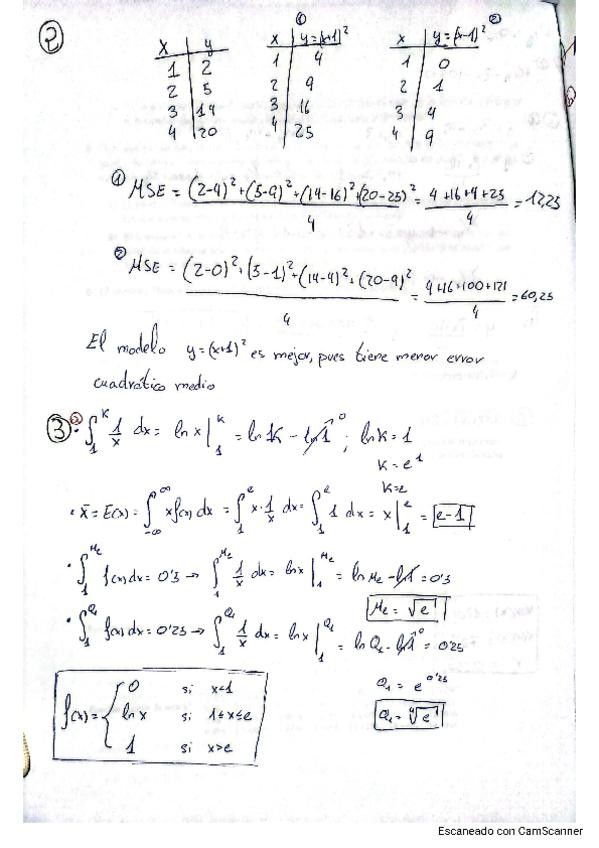 ②
x | y
1 | 2
2 | 5
3 | 14
4 | 20
①
x | y=(x+1)²
1 | 4
2 | 9
3 | 16
4 | 25
②
x | y=(x-1)²
1 | 0
2 | 1
3 | 4
4 | 9
① MSE = ((2-4)²+(5-9)²+(14-16)²+(20-25)²)/4 = (4+16+4+25)/4 = 12,25
② MSE = ((2-0)²+(5-1)²+(14-4)²+(20-9)²)/4 = (4+16+100+121)/4 = 60,25
El modelo y=(x+1)² es mejor, pues tiene menor error
cuadrático medio
③ · ∫₁ᴷ 1/x dx = ln x |₁ᴷ = ln K - ln 1 ⁰ ; ln K = 1
K = e¹
K = e
· x̄ = E(x) = ∫_{-∞}^{∞} x f(x) dx = ∫₁ᵉ x · 1/x dx = ∫₁ᵉ 1 dx = x |₁ᵉ = e-1
· ∫₁^{Me} f(x) dx = 0'5 → ∫₁^{Me} 1/x dx = ln x |₁^{Me} = ln Me - ln 1 = 0'5
Me = √e
· ∫₁^{Q₁} f(x) dx = 0'25 → ∫₁^{Q₁} 1/x dx = ln x |₁^{Q₁} = ln Q₁ - ln 1 ⁰ = 0'25
Q₁ = e^{0'25}
Q₁ = ⁴√e
f(x) = { 0 si x<1
ln x si 1≤x≤e
1 si x>e
Escaneado con CamScanner